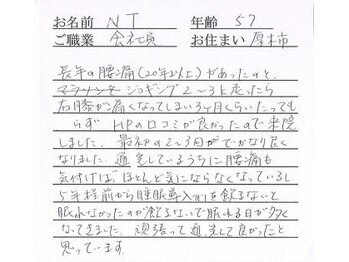 お名前 NT 年齢 57
ご職業 会社員 お住まい 厚木市
長年の腰痛(20年以上)があったのと、
ジョギング2〜3k走ったら
右膝が痛くなってしまい3ヶ月くらいたっても
らず HPの口コミが良かったので来院
しました。最初の2〜3回でかなり良く
なりました。通院しているうちに腰痛も
気付けば、ほとんど気にならなくなっているし
5年程前から睡眠導入剤を飲るないと
眠れなかったのが飲るないで眠れる日が多く
なってきました。頑張って通院して良かったと
思っています